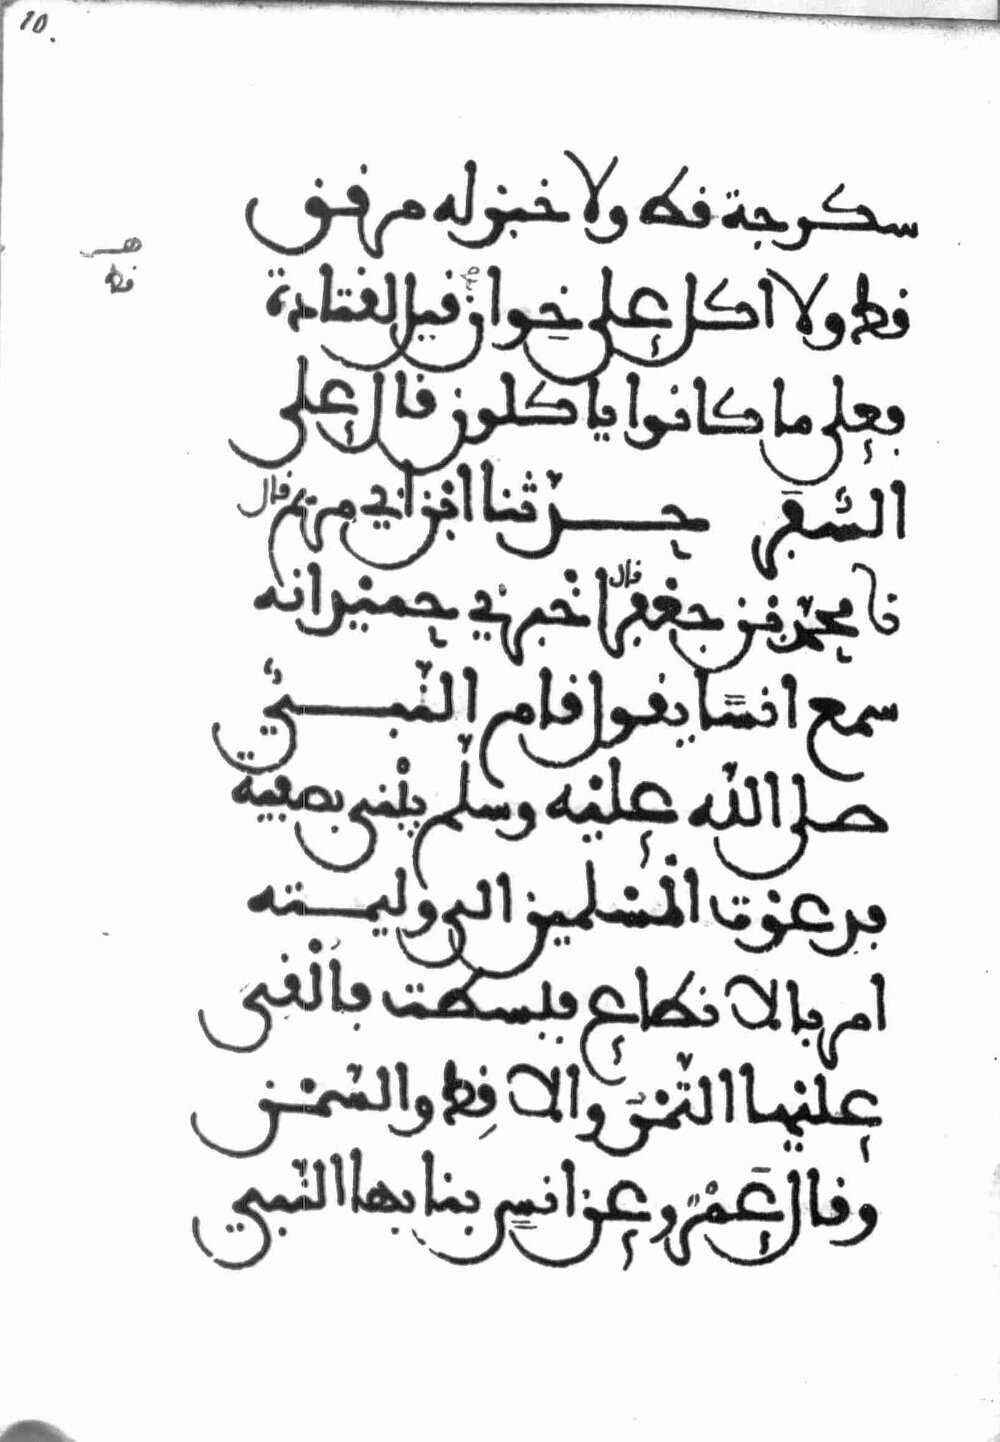 10.
سكرجة قط ولا خبز له مرقق
قط ولا اكل على خوان قيل لقتادة
فعلى ما كانوا ياكلون قال على
السفر حدثنا ابن ابي مريم قال
نا محمد بن جعفر قال اخبرني حميد انه
سمع انسا يقول قام النبي
صلى الله عليه وسلم يبنى بصفية
فدعوت المسلمين الى وليمته
امر بالانطاع فبسطت فالقى
عليها التمر والاقط والسمن
وقال عمرو عن انس بنا بها النبي